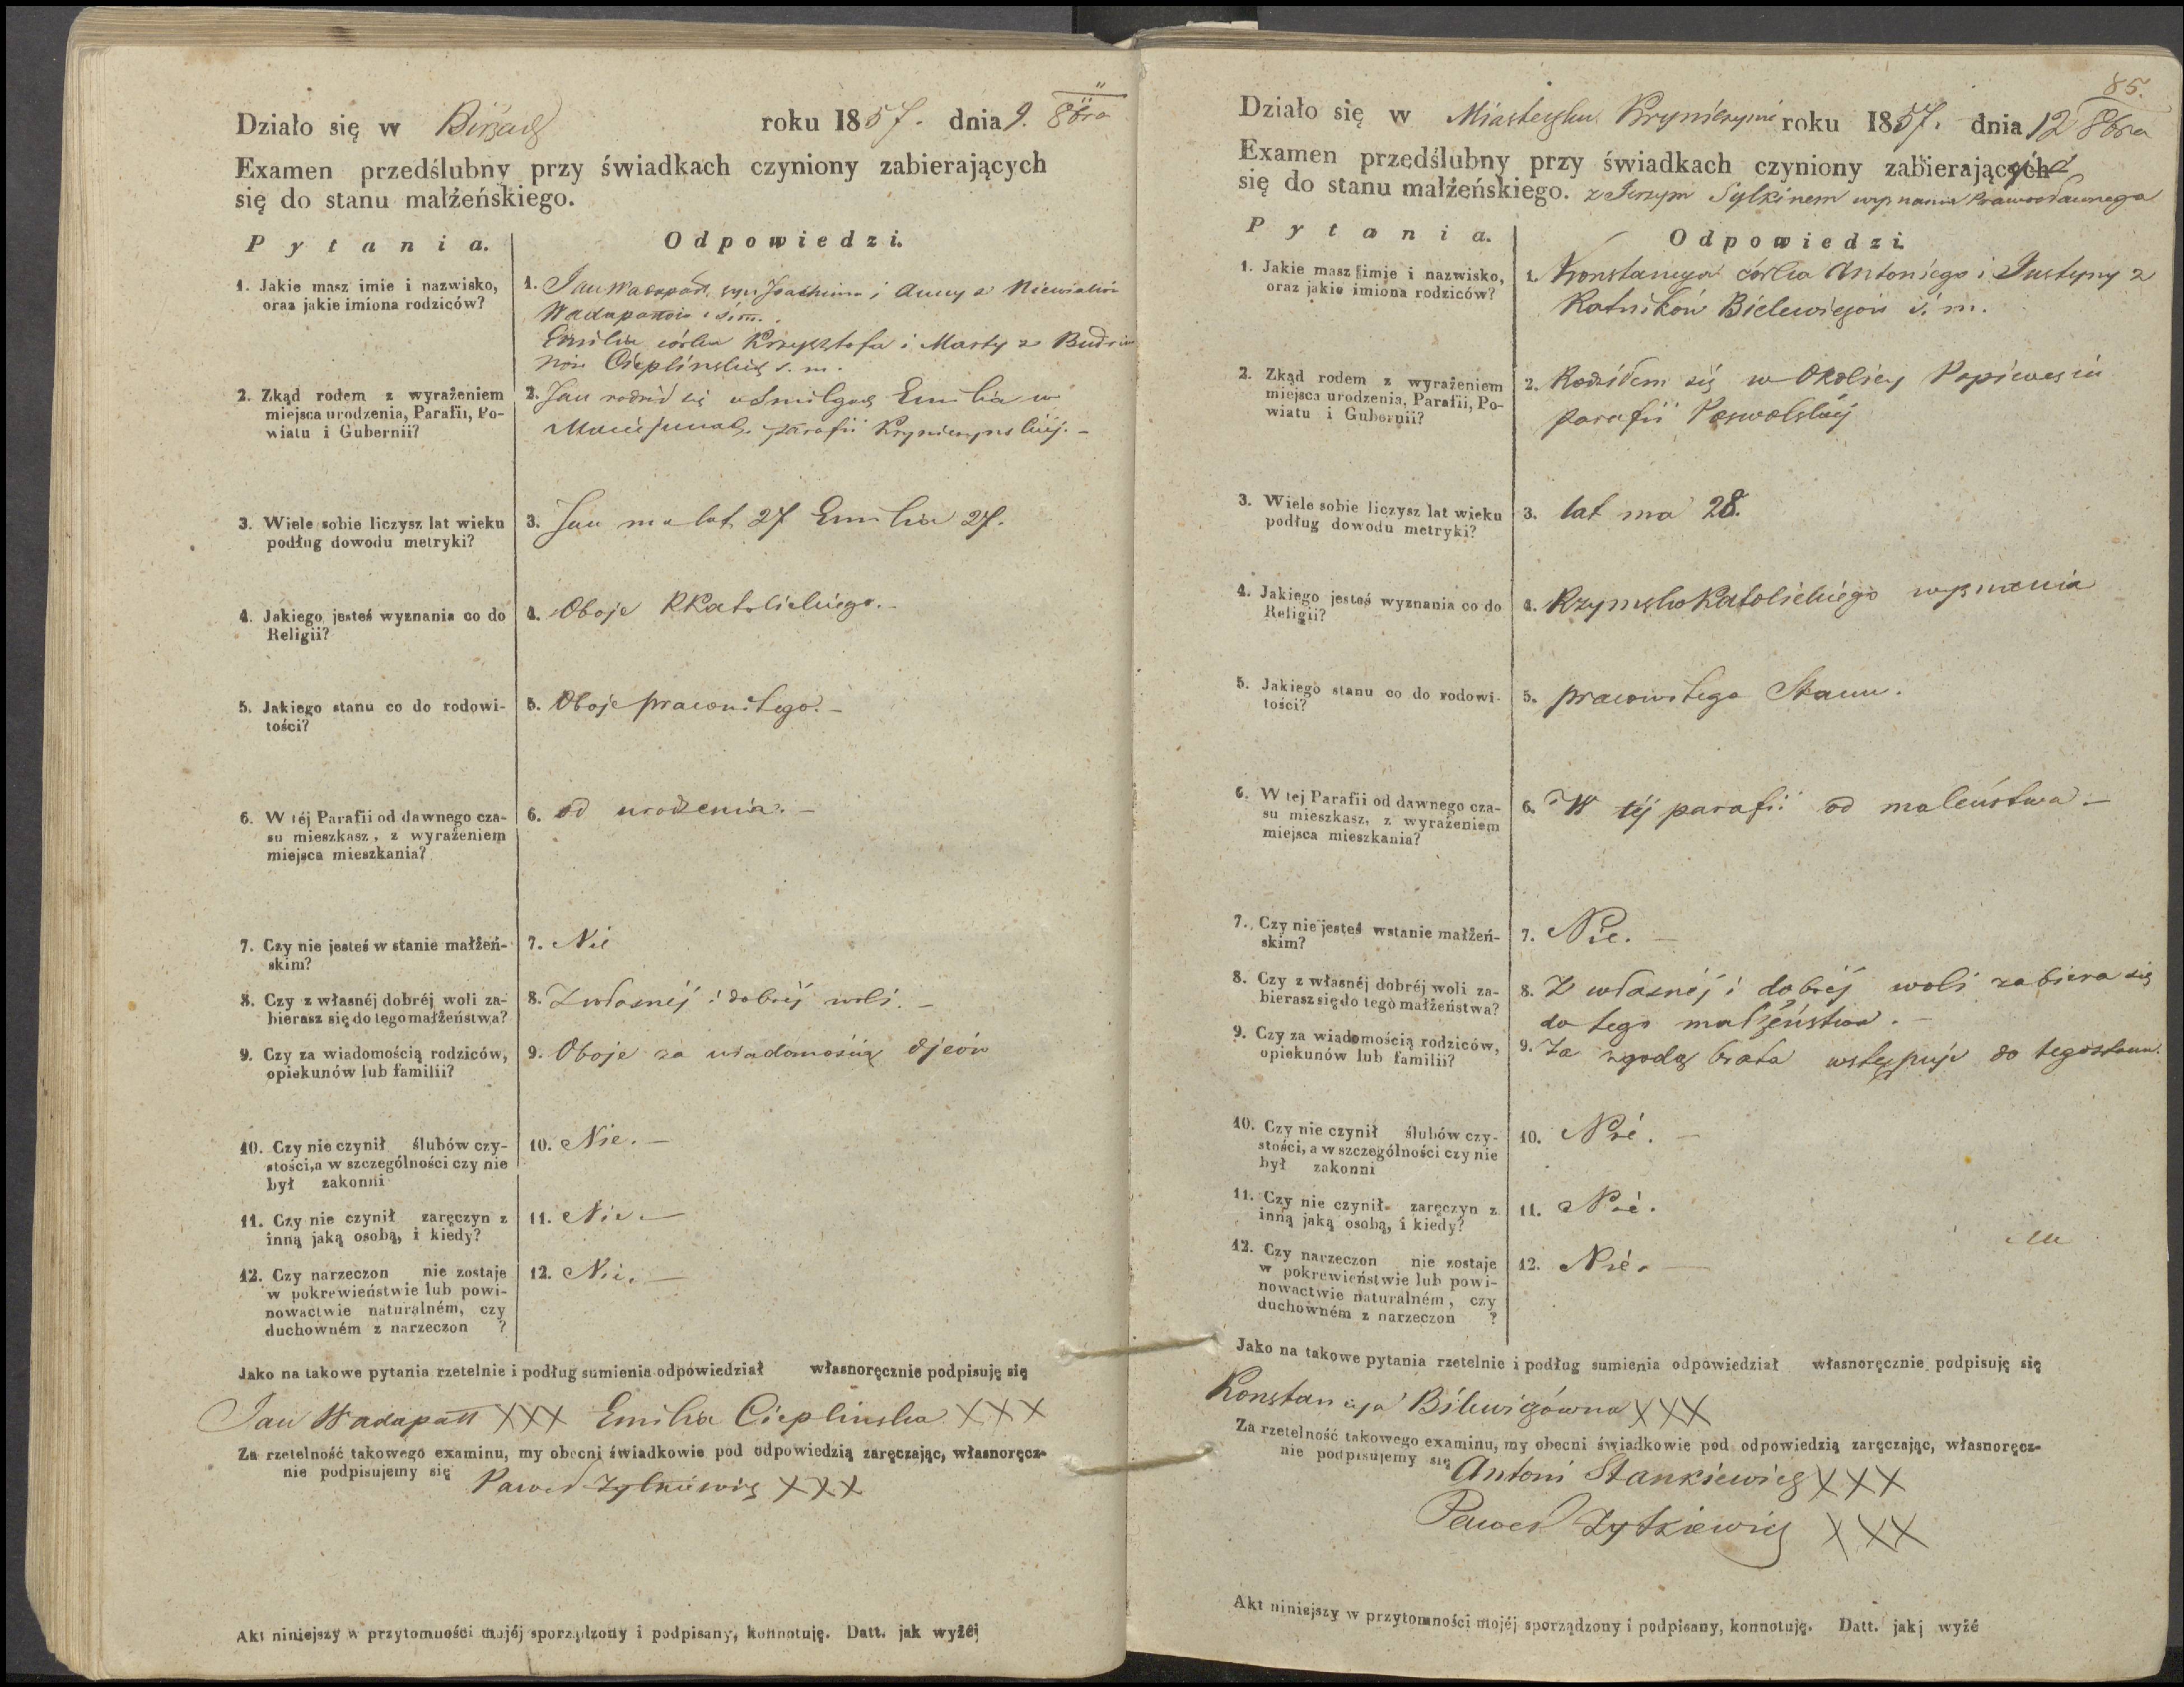 Działo się w Birżach roku 1857. dnia 9. 8bra
Examen przedślubny przy świadkach czyniony zabierających
się do stanu małżeńskiego.
Pytania. Odpowiedzi.
1. Jakie masz imie i nazwisko,
oraz jakie imiona rodziców?
1. Jan Wadapatt syn Joachima i Anny z
Wadapattów ś. m.
Emilia córka Krzysztofa i Marty z
Cieplińskich s. m.
2. Zkąd rodem z wyrażeniem
miejsca urodzenia, Parafii, Po-
wiatu i Gubernii?
2. Jan rodził się w Smilgach Emilia w
parafii Kryniczynskiéj. -
3. Wiele sobie liczysz lat wieku
podług dowodu metryki?
3. Jan ma lat 27 Emilia 27.
4. Jakiego jesteś wyznania co do
Religii?
4. Oboje RKatolickiego. -
5. Jakiego stanu co do rodowi-
tości?
5. Oboje pracowitego. -
6. W téj Parafii od dawnego cza-
su mieszkasz, z wyrażeniem
miejsca mieszkania?
6. od urodzenia. -
7. Czy nie jesteś w stanie małżeń-
skim?
7. Nie
8. Czy z własnéj dobréj woli za-
bierasz się do tego małżeństwa?
8. Z własnéj i dobréj woli. -
9. Czy za wiadomością rodziców,
opiekunów lub familii?
9. Oboje za wiadomością Ojców
10. Czy nie czynił ślubów czy-
stości, a w szczególności czy nie
był zakonni
10. Nie. -
11. Czy nie czynił zaręczyn z
inną jaką osobą, i kiedy?
11. Nie. -
12. Czy narzeczon nie zostaje
w pokrewieństwie lub powi-
nowactwie naturalném, czy
duchowném z narzeczon ?
12. Nie. -
Jako na takowe pytania rzetelnie i podług sumienia odpowiedział własnoręcznie podpisuję się
Jan Wadapatt XXX Emilia Cieplinska XXX
Za rzetelność takowego examinu, my obecni świadkowie pod odpowiedzią zaręczając, własnoręcz-
nie podpisujemy się
Paweł XXX
Akt niniejszy w przytomności mojéj sporządzony i podpisany, konnotuję. Datt. jak wyżéj
85.
Działo się w Miasteczku Kryniczynie roku 1857. dnia 12 8bra
Examen przedślubny przy świadkach czyniony zabierającéj
się do stanu małżeńskiego. z Jerzym Sylkinem wyznania Prawosławnego
Pytania. Odpowiedzi.
1. Jakie masz imie i nazwisko,
oraz jakie imiona rodziców?
1. Konstancya córka Antoniego i Justyny z
Ratników Bielewiczów ś. m.
2. Zkąd rodem z wyrażeniem
miejsca urodzenia, Parafii, Po-
wiatu i Gubernii?
2. Rodziłem się w Okolicy
parafii Poswolskiéj
3. Wiele sobie liczysz lat wieku
podług dowodu metryki?
3. lat ma 28.
4. Jakiego jesteś wyznania co do
Religii?
4. Rzymsko Katolickiego wyznania
5. Jakiego stanu co do rodowi-
tości?
5. pracowitego Stanu.
6. W tej Parafii od dawnego cza-
su mieszkasz, z wyrażeniem
miejsca mieszkania?
6. W téj parafii od maleństwa. -
7. Czy nie jesteś wstanie małżeń-
skim?
7. Nie. -
8. Czy z własnéj dobréj woli za-
bierasz się do tego małżeństwa?
8. Z własnéj i dobréj woli zabiera się
do tego małżeństwa. -
9. Czy za wiadomością rodziców,
opiekunów lub familii?
9. Za zgodą brata wstępuje do tego stanu.
10. Czy nie czynił ślubów czy-
stości, a w szczególności czy nie
był zakonni
10. Nié. -
11. Czy nie czynił zaręczyn z
inną jaką osobą, i kiedy?
11. Nié.
12. Czy narzeczon nie zostaje
w pokrewieństwie lub powi-
nowactwie naturalném, czy
duchowném z narzeczon ?
12. Nié. -
Jako na takowe pytania rzetelnie i podług sumienia odpowiedział własnoręcznie podpisuję się
Konstancja Bilewiczówna XXX
Za rzetelność takowego examinu, my obecni świadkowie pod odpowiedzią zaręczając, własnoręcz-
nie podpisujemy się
Antoni Stankiewicz XXX
Paweł Zytkiewicz XXX
Akt niniejszy w przytomności mojéj sporządzony i podpisany, konnotuję. Datt. jakj wyżé